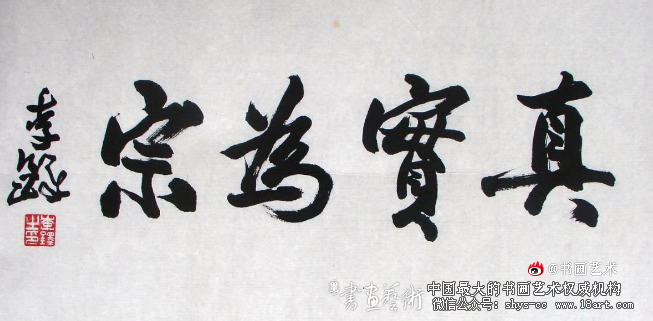 真實為宗
李鐸
@书画艺术
書画藝術
中国最大的书画艺术权威机构
微信公众号：shys-cc www.18art.com